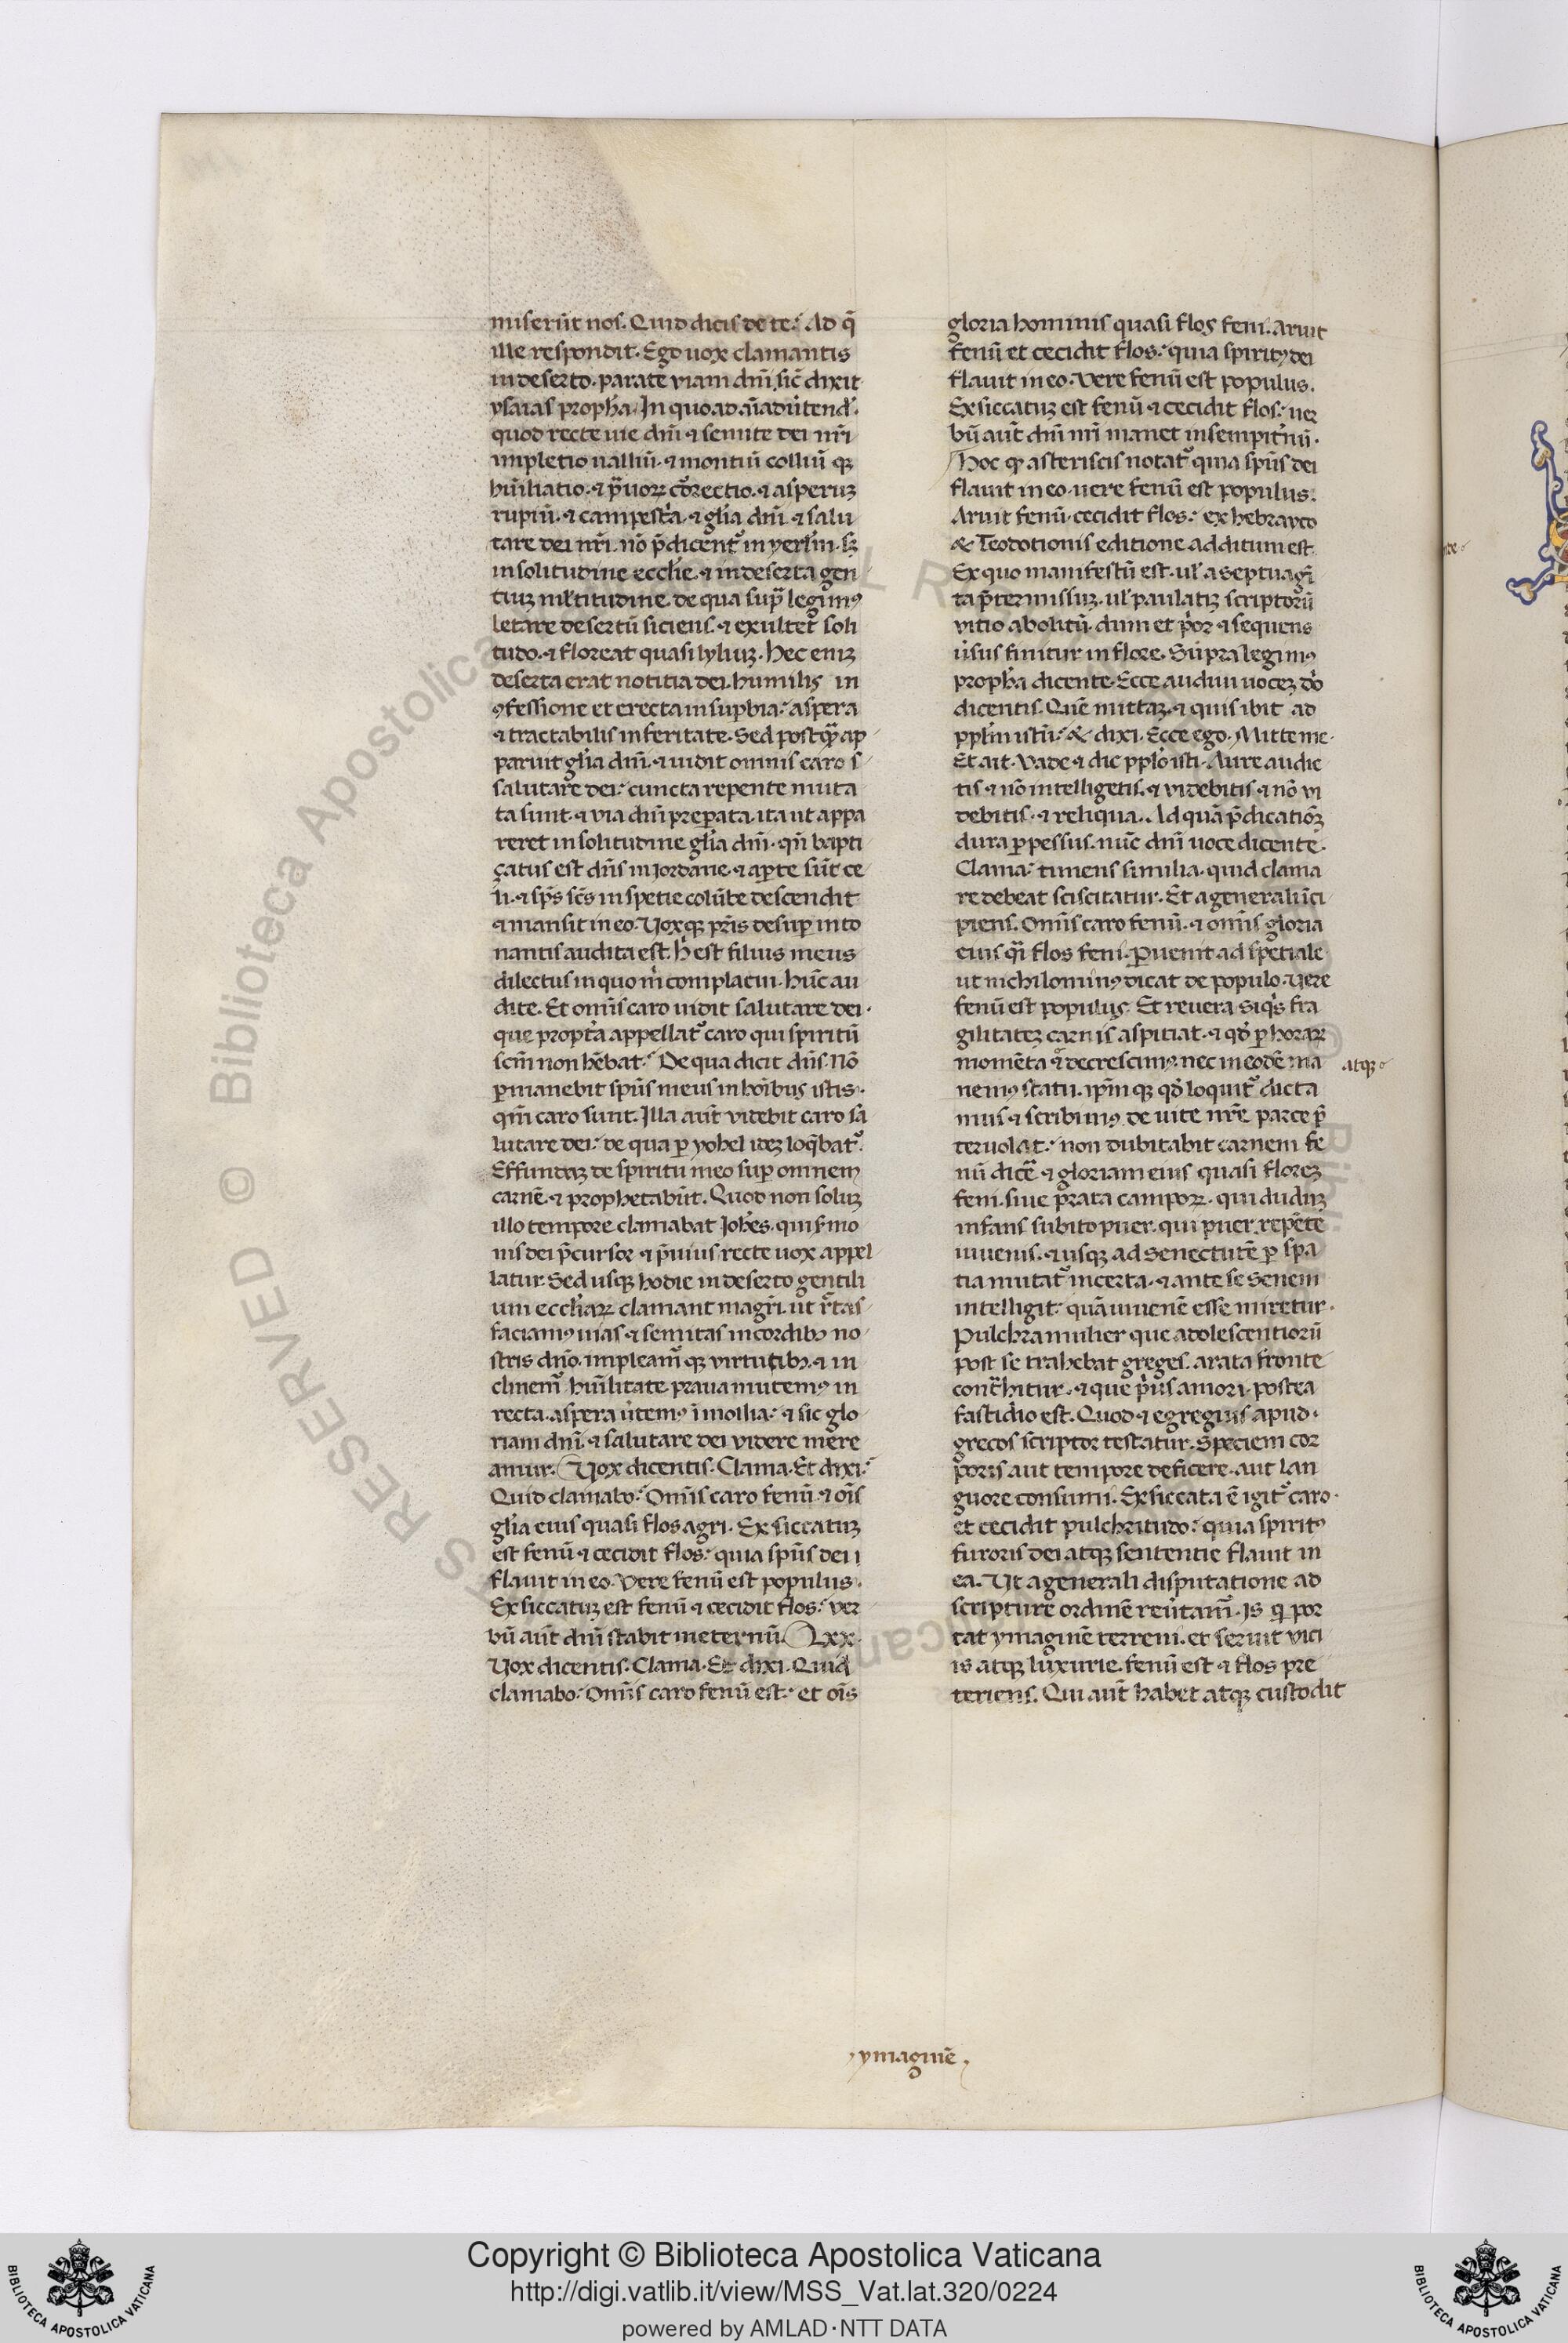 miserūt nos. Quid dicis de te? Ad q̄
ille respondit. Ego uox clamantis
in deserto. parate viam dn̄i. sic̄ dixit
ysaias propha. In quo ad aīaduꝰtend.
quod recte uie dn̄i ⁊ semite dei nr̄i
impletio ualliū. ⁊ montiū colliū qꝫ
hūiliatio. ⁊ p̄uoꝝ cōrectio. ⁊ asperuꝫ
rupiū. ⁊ campest̄a. ⁊ gl̄ia dn̄i ⁊ salu
tare dei nr̄i. nō p̄dicent᷑ in yerl̄m. sꝫ
in solitudine eccl̄ie. ⁊ in deserta gen
tiuꝫ ml̄titudine. de qua sup̄ legimꝰ
letare desertū siciens. ⁊ exultet soli
tudo. ⁊ floreat quasi lyliuꝫ. Hec enīꝫ
deserta erat notitia dei. humilis in
ꝯfessione et erecta in suꝑbia. aspera
⁊ tractabilis in feritate. Sed postqꝫ ap
paruit gl̄ia dn̄i. ⁊ uidit omnis caro s
salutare dei. cuncta repente muta
ta sunt. ⁊ via dn̄i preꝑata. ita ut appa
reret in solitudine gl̄ia dn̄i. qn̄ bapti
çatus est dn̄s in Iordane. ⁊ aꝑte sūt ce
li. ⁊ sp̄s sc̄s in spetie colūbe descendit
⁊ mansit in eo. Uoxqꝫ pr̄is desuꝑ into
nantis audita est. Hꝰ est filius meus
dilectus in quo m̄ complacui. hūc au
dite. Et om̄is caro uidit salutare dei.
que propt̄a appellat᷑ caro qui spiritū
scm̄ non hēbat. De qua dicit dn̄s. Nō
ꝑmanebit sp̄us meus in hoībus istis.
qm̄ caro sunt. Illa aūt videbit caro sa
lutare dei. de qua ꝑ yohel ideꝫ loq̄bat᷑.
Effundaꝫ de spiritu meo suꝑ omnem
carnē. ⁊ prophetabūt. Quod non soluꝫ
illo tempore clamabat Joh̄es. qui sꝰmo
nis dei p̄cursor ⁊ p̄uius recte uox appel
latur. Sed usqꝫ hodie in deserto gentili
um eccl̄iaꝝ clamant magr̄i. ut rc̄tas
faciamꝰ uias ⁊ semitas in cordibꝫ no
stris dn̄o. impleamꝰ qꝫ virtutibꝫ. ⁊ in
clinemꝰ hūilitate. praua mutemꝰ in
recta. aspera uꝰtemꝰ ī mollia. ⁊ sic glo
riam dn̄i. ⁊ salutare dei videre mere
amur. Uox dicentis. Clama. Et dixi.
Quid clamabo. Om̄is caro fenū. ⁊ oīs
gl̄ia eius quasi flos agri. Exsiccatuꝫ
est fenū ⁊ cecidit flos. quia sp̄us dei i
flauit in eo. Vere fenū est populus.
Exsiccatuꝫ est fenū ⁊ cecidit flos. ver
bū aūt dn̄i stabit in eternū. Lxx.
Uox dicentis. Clama. Et dixi. Quid
clamabo. Om̄is caro fenū est. et oīs
gloria hominis quasi flos feni. Aruit
fenū et cecidit flos. quia spiritꝰ dei
flauit in eo. Vere fenū est populus.
Exsiccatuꝫ est fenū ⁊ cecidit flos. uer
bū aūt dn̄i nr̄i manet in sempitꝰnū.
Hoc qꝫ asteriscis notat᷑ quia sp̄us dei
flauit in eo. uere fenū est populus.
Aruit fenū. cecidit flos. ex hebrayco
& Teodotionis editione additum est.
Ex quo manifestū est. ul̓ a septuagī
ta p̄termissuꝫ. ul̓ paulatiꝫ scriptorū
vitio abolitū. dum et p̄or ⁊ sequens
uꝰsus finitur in flore. Supra legimꝰ
propha dicente. Ecce audiui uoceꝫ do
dicentis. Quē mittaꝫ. ⁊ quis ibit ad
ppl̄m istū. & dixi. Ecce ego. Mitte me.
Et ait. Vade ⁊ dic pplō isti. Aure audie
tis ⁊ nō intelligetis. ⁊ videbitis ⁊ nō vi
debitis. ⁊ reliqua. Ad quā p̄dicationeꝫ
dura ꝑpessus. nūc dn̄i uoce dicente.
Clama. timens similia. quid clama
re debeat sciscitatur. Et a generali ici
piens. Om̄is caro fenū. ⁊ om̄is gloria
eius q̄i flos feni. Peruenit ad spetiale
ut nichilominꝰ dicat de populo. Vere
fenū est populus. Et reuera siq̄s fra
gilitateꝫ carnis aspitiat. ⁊ qd̄ ꝑ horaꝝ
momēta decrescimꝰ. nec in eodē ma
atqꝫ
nemꝰ statu. ip̄m qꝫ qd̄ loquit᷑ dicta
mus ⁊ scribimꝰ de uite nr̄e parte p̄
teruolat. non dubitabit carnem fe
nū dicē ⁊ gloriam eius quasi floreꝫ
feni. siue prata campoꝝ. qui duduꝫ
infans subito puer. qui puer repēte
iuuenis. ⁊ usqꝫ ad senectutē ꝑ spa
tia mutat᷑ incerta. ⁊ ante se senem
intelligit. quā iuuenē esse miretur.
Pulchra mulier que adolescentiorū
post se trahebat greges. arata fronte
contͣhitur. ⁊ que p̄us amori. postea
fastidio est. Quod ⁊ egregius apud
grecos scriptor testatur. Speciem cor
poris aut tempore deficere. aut lan
guore consumi. Exsiccata ē igit᷑ caro.
et cecidit pulchritudo. quia spiritꝰ
furoris dei atqꝫ sententie flauit in
ea. Ut a generali disputatione ad
scripture ordinē reuꝰtamꝰ. Is q̄ por
tat ymaginē terreni. et seruit vici
is atqꝫ luxurie. fenū est ⁊ flos pre
teriens. Qui aūt habet atqꝫ custodit
ymaginē
Copyright © Biblioteca Apostolica Vaticana
http://digi.vatlib.it/view/MSS_Vat.lat.320/0224
powered by AMLAD·NTT DATA
BIBLIOTECA APOSTOLICA VATICANA
BIBLIOTECA APOSTOLICA VATICANA